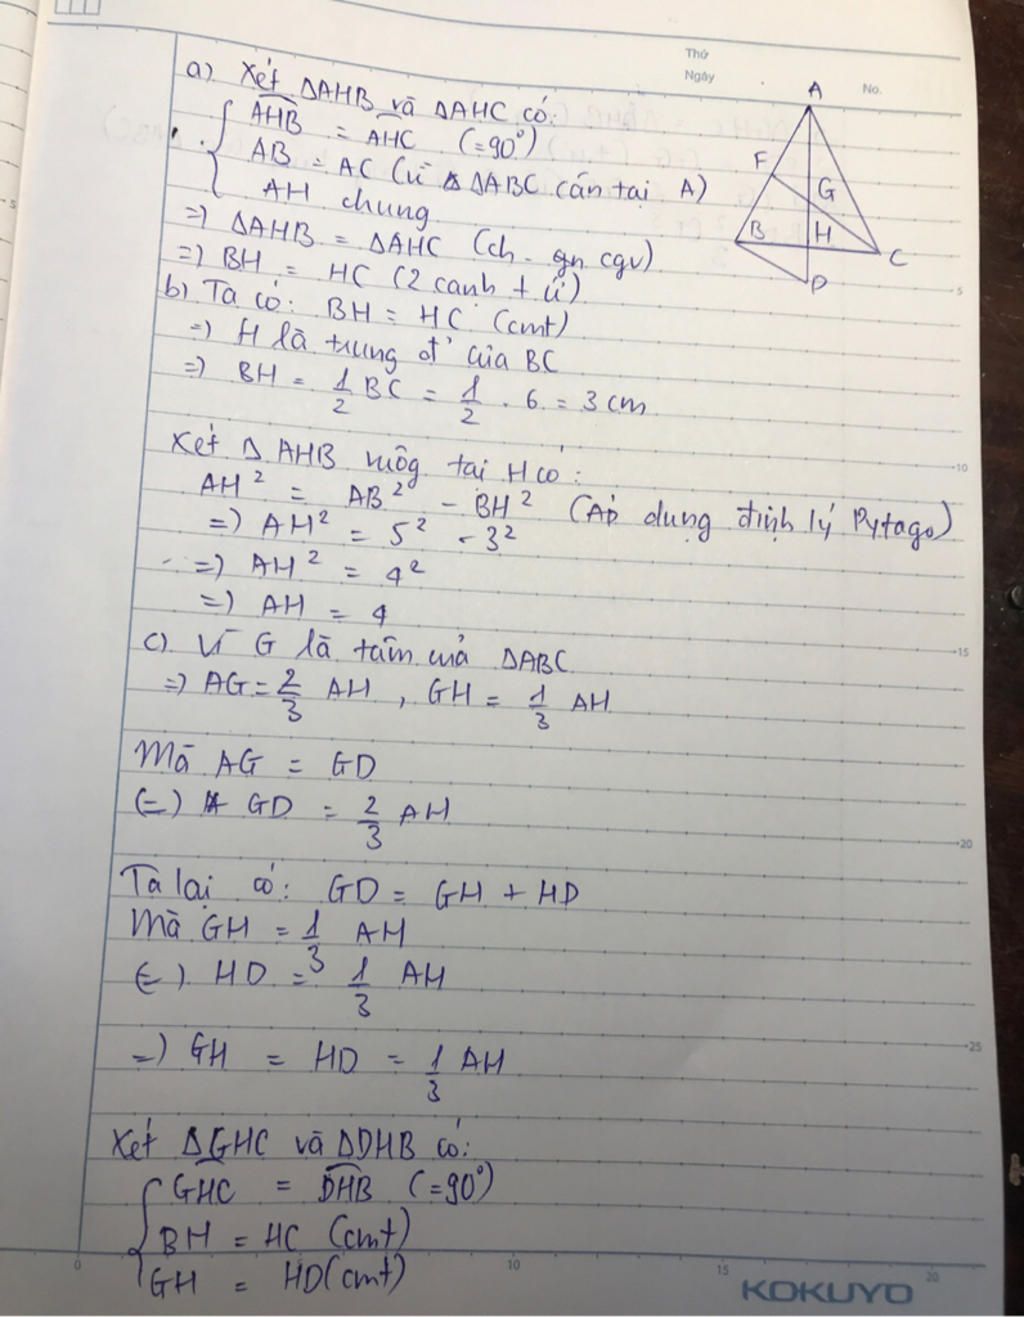 Thứ
Ngày
No.
a) Xét ΔAHB và ΔAHC có:
AHB = AHC (=90°)
AB = AC (vì ΔABC cân tại A)
AH chung
=) ΔAHB = ΔAHC (ch - gn cgv)
=) BH = HC (2 cạnh t ứ)
b) Ta có: BH = HC (cmt)
=) H là trung đ' của BC
=) BH = 1/2 BC = 1/2 . 6 = 3 cm
Xét Δ AHB vuôg tại H có:
AH² = AB² - BH² (Áp dụng định lý Pytago)
=) AH² = 5² - 3²
=) AH² = 4²
=) AH = 4
c) Vì G là tâm của ΔABC
=) AG = 2/3 AH , GH = 1/3 AH
Mà AG = GD
(=) GD = 2/3 AH
Ta lại có: GD = GH + HD
Mà GH = 1/3 AH
(=) HD = 1/3 AH
=) GH = HD = 1/3 AH
Xét ΔGHC và ΔDHB có:
GHC = DHB (=90°)
BH = HC (cmt)
GH = HD (cmt)
A
F
G
B
H
C
D
5
5
10
15
20
25
0
10
15
20
KOKUYO